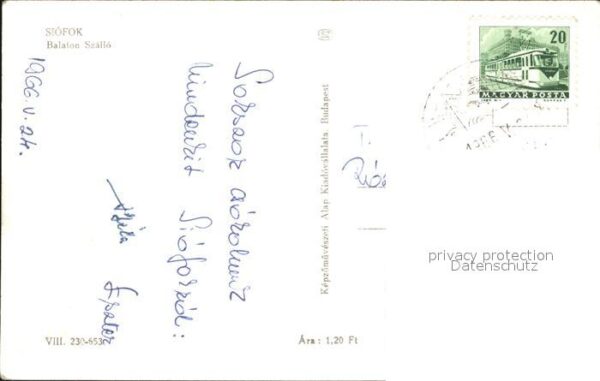 SIÓFOK
Balaton Szálló
1966. V. 24.
Sokszor üdvözlünk
mindenkit Siófokról:
Béla Eszter
VIII. 230-653
Képzőművészeti Alap Kiadóvállalata Budapest
Ára: 1,20 Ft
20
MAGYAR POSTA
privacy protection
Datenschutz